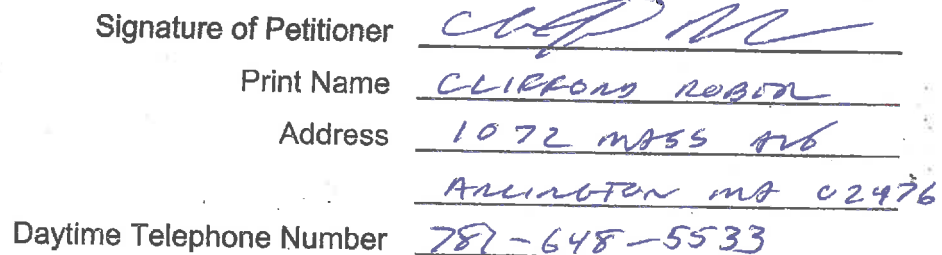 Signature of Petitioner
Print Name CLIFFORD ROBER
Address 1072 MASS AVE
ARLINGTON MA 02476
Daytime Telephone Number 781-648-5533